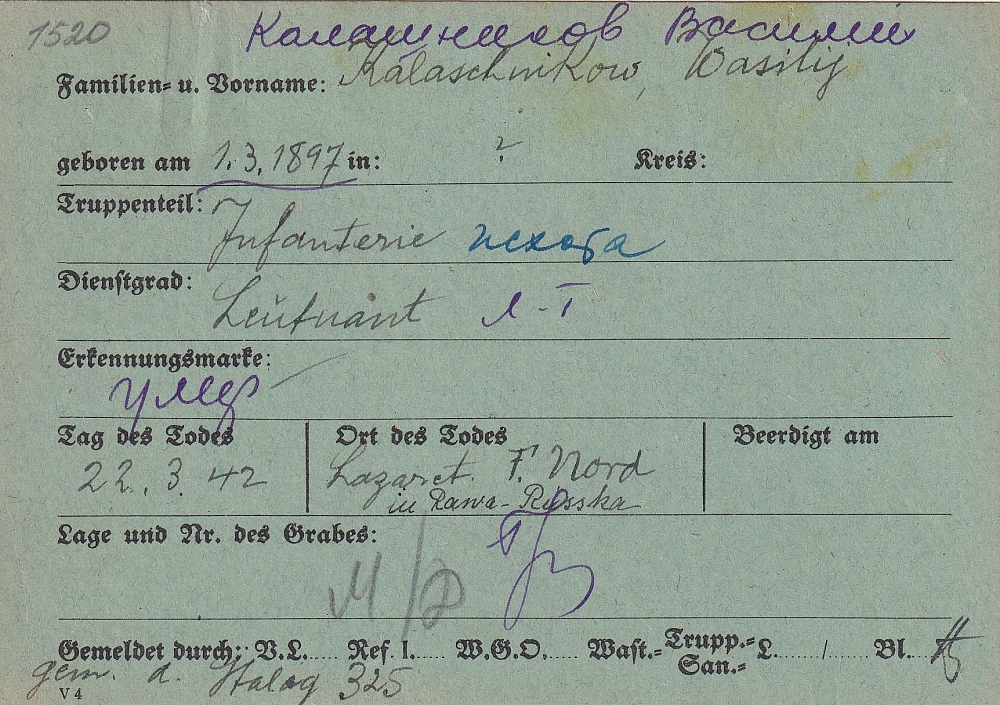 1520
Калашников Василий
Familien- u. Vorname: Kalaschnikow, Wasilij
geboren am 1.3.1897 in: ? Kreis:
Truppenteil:
Infanterie пехота
Dienstgrad:
Leutnant л-т
Erkennungsmarke:
умер
Tag des Todes Ort des Todes Beerdigt am
22.3.42 Lazaret F. Nord
in Rawa-Russka
Lage und Nr. des Grabes:
Gemeldet durch: V.L. Ref. I. W.G.O. Wast.- Trupp.- San.- L. / Bl.
gem. d. Stalag 325
V 4